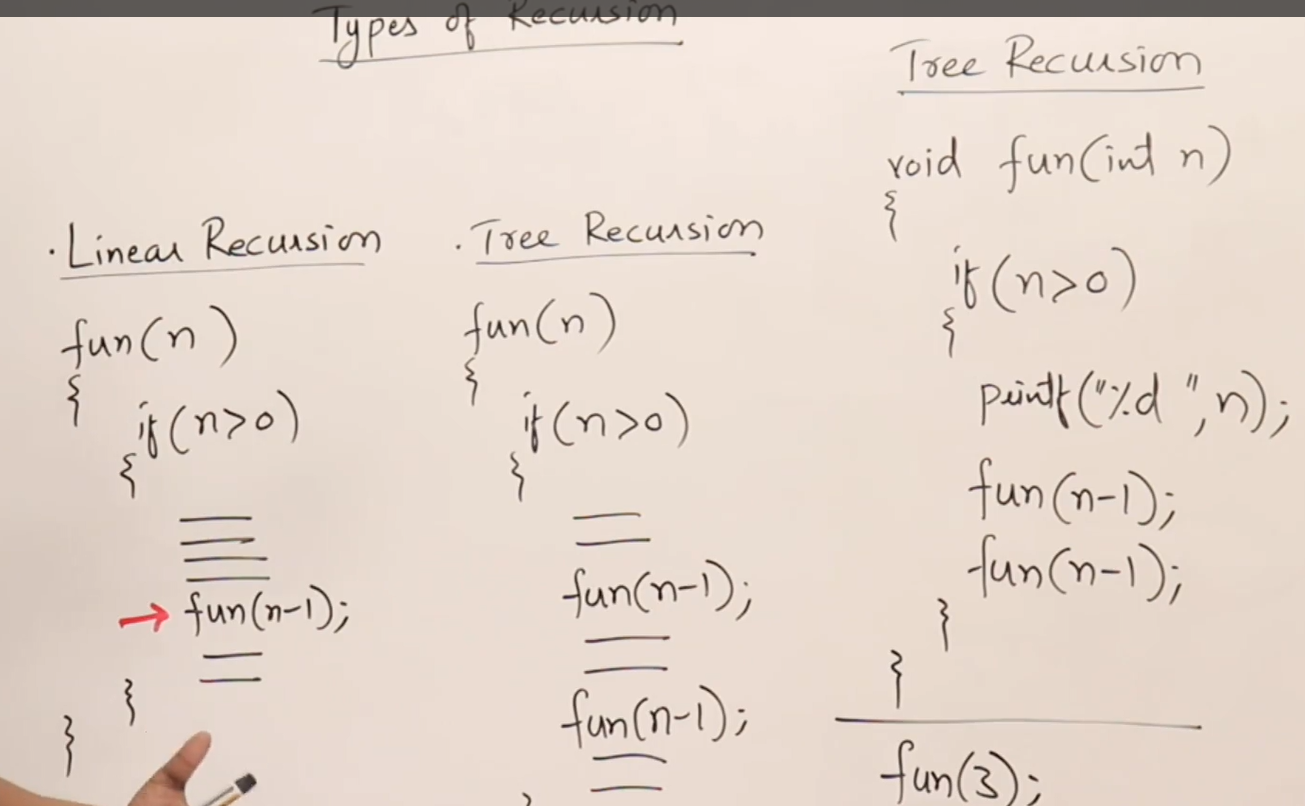 Types of Recursion
Linear Recursion
fun(n)
{
if(n>0)
{
fun(n-1);
}
}
Tree Recursion
fun(n)
{
if(n>0)
{
fun(n-1);
fun(n-1);
}
Tree Recursion
void fun(int n)
{
if(n>0)
{
printf("%d ",n);
fun(n-1);
fun(n-1);
}
}
fun(3);